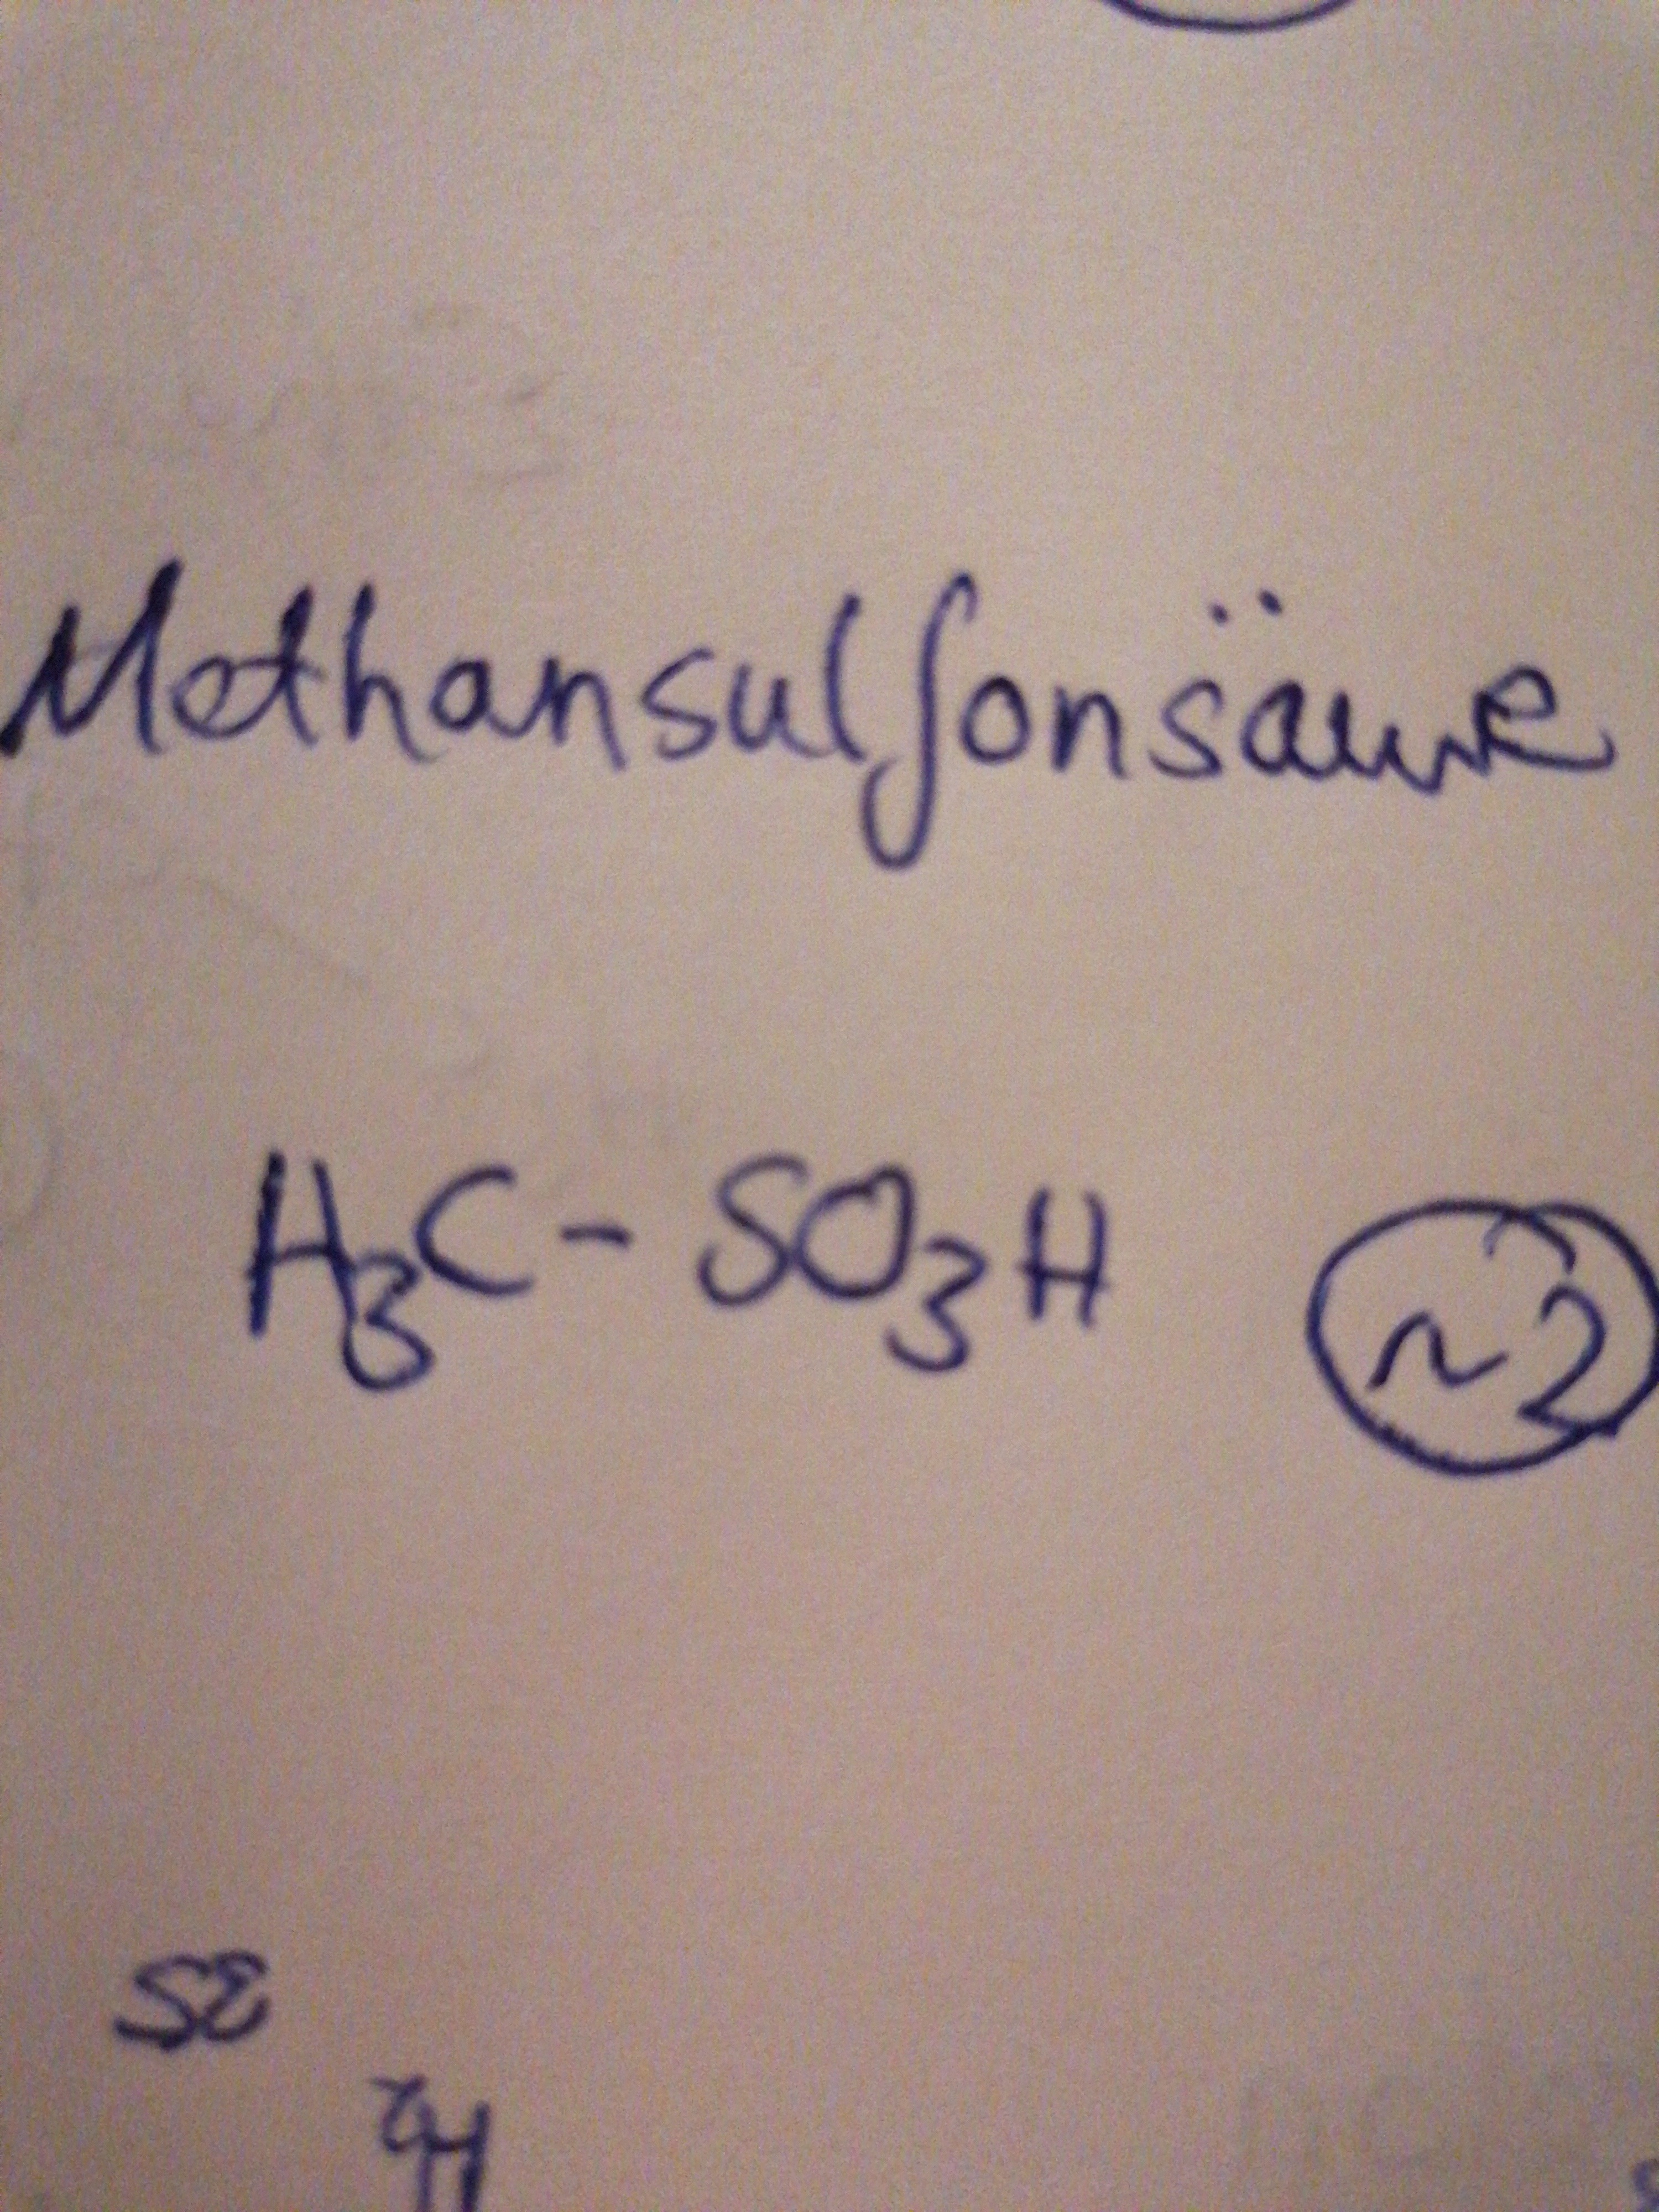 Methansulfonsäure
H₃C - SO₃H ~2